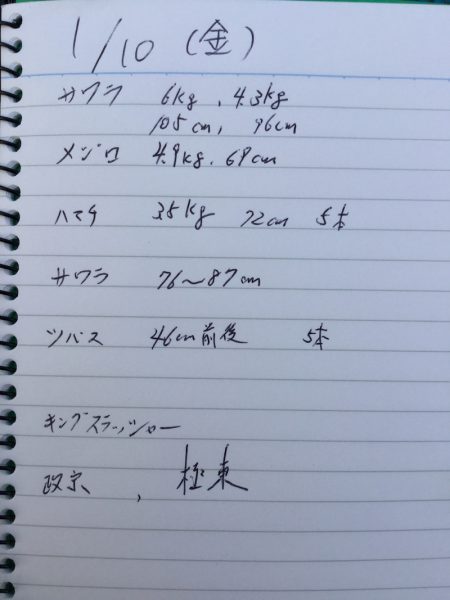 1/10 (金)
サワラ 6kg, 4.3kg
105cm, 96cm
メジロ 4.9kg, 69cm
ハマチ 3.5kg 72cm 5本
サワラ 76〜87cm
ツバス 46cm前後 5本
キングスラッシャー
政宗, 極東